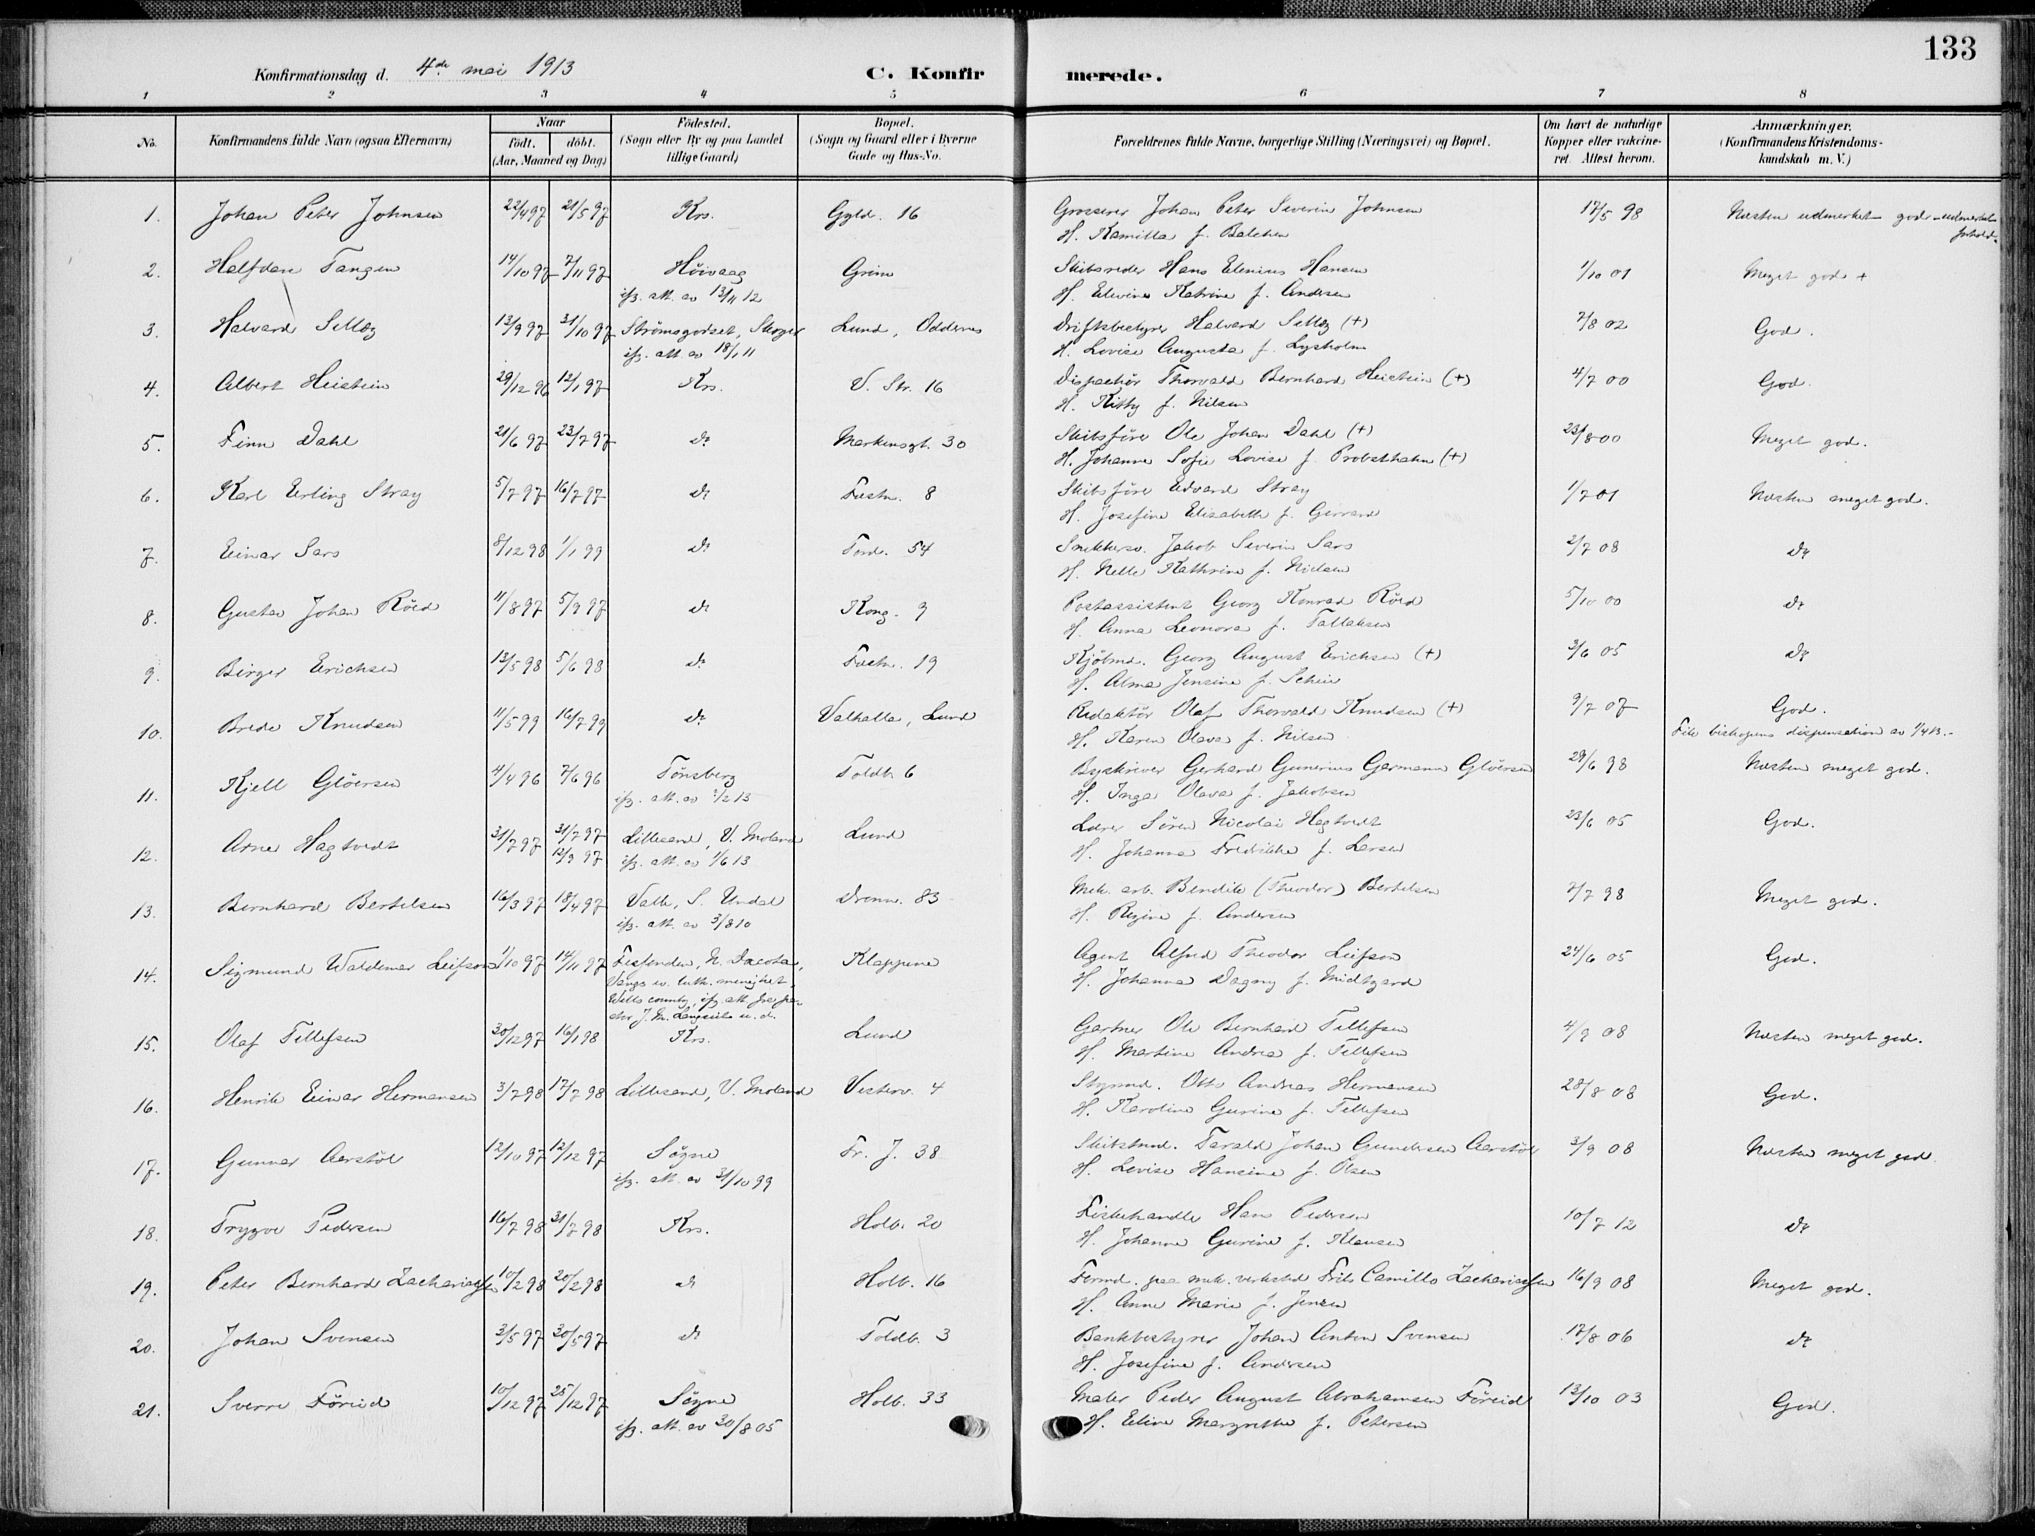 133
Konfirmationsdag d. 4de mai 1913 C. Konfirmerede.
1 2 3 4 5 6 7 8
No. Konfirmandens fulde Navn (ogsaa Efternavn) Naar født. døbt. (Aar, Maaned og Dag) Fødested. (Sogn eller By og paa Landet tillige Gaard) Bopæl. (Sogn og Gaard eller i Byerne Gade og Hus-No. Forældrenes fulde Navne, borgerlige Stilling (Næringsvei) og Bopæl. Om havt de naturlige Kopper eller vakcineret. Attest herom. Anmærkninger. (Konfirmandens Kristendomskundskab m. V.)
1. Johan Peter Johnsen 22/4 97 21/5 97 Krs. Gyld. 16 Grosserer Johan Peter Severin Johnsen 17/5 98 Næsten udmerket god - udmerket forhold.
H. Kamilla f. Balchen
2. Halfdan Tangen 14/10 97 7/11 97 Høivaag Grim Skibsreder Hans Elenius Hansen 1/10 01 Meget god +
ifg. att. av 13/11 12 H. Edvine Katrine f. Andersen
3. Halvard Selläg 13/9 97 31/10 97 Strømsgodset, Skoger Lund, Oddernes Driftsbestyrer Halvard Selläg (+) 7/8 02 God.
ifg. att. av 18/1 11 H. Lovise Augusta f. Lysholm
4. Albert Heistein 29/12 96 12/1 97 Krs. V. Str. 16 Dispachør Thorvald Bernhard Heistein (+) 4/7 00 God.
H. Kitty f. Nilsen
5. Finn Dahl 21/6 97 23/7 97 do Markensgt. 30 Skibsfører Ole Johan Dahl (+) 23/8 00 Meget god.
H. Johanne Sofie Lovise f. Probsthahn (+)
6. Karl Erling Stray 5/7 97 16/7 97 do Festn. 8 Skibsfører Edvard Stray 1/7 01 Næsten meget god.
H. Josefine Elisabeth f. Gerrard
7. Einar Sars 8/12 98 1/1 99 do Tord. 54 Snekkersv. Jakob Severin Sars 2/7 08 do
H. Nelle Kathrine f. Nielsen
8. Gustav Johan Röed 11/8 97 5/9 97 do Kong. 9 Postassistent Georg Konrad Röed 5/10 00 do
H. Anna Leonora f. Tallaksen
9. Birger Erichsen 13/5 98 5/6 98 do Festn. 19 Kjøbmd. Georg August Erichsen (+) 3/6 05 do
H. Alma Jensine f. Scheie
10. Brede Knudsen 11/5 99 16/7 99 do Valhalla, Lund Redaktør Olaf Thorvald Knudsen (+) 9/7 07 God.
H. Karen Olava f. Nilsen Fik biskopens dispensation av 1/4 13.-
11. Kjell Glöersen 4/4 96 7/6 96 Tønsberg Toldb. 6 Byskriver Gerhard Gunerius Germann Glöersen 29/6 98 Næsten meget god.
H. Inga Olava f. Jakobsen
12. Arne Hagtvedt 31/7 97 31/7 97 Lillesand, V. Moland Lund Lærer Søren Nicolai Hagtvedt 23/6 05 God.
12/9 97 ifg. att. av 1/6 13 H. Johanna Fredrikke f. Larsen
13. Bernhard Bertelsen 16/3 97 18/4 97 Valle, S. Undal Dronn. 83 Mek. arb. Bendik (Theodor) Bertelsen 7/7 98 Meget god.
ifg. att. av 3/8 10 H. Regine f. Andersen
14. Sigmund Waldemar Leifson 1/10 97 14/11 97 Fessenden, N. Dacota, Klappene Agent Alfred Theodor Leifson 24/6 05 God.
Vangs ev. luth. menighet, H. Johanna Dagny f. Midtgard
Wells county, ifg. att. fra pastor J. M. u. d.
15. Olaf Tellefsen 30/12 97 16/1 98 Krs. Lund Gartner Ole Bernhard Tellefsen 4/9 08 Næsten meget god.
H. Martine Andrea f. Tellefsen
16. Henrik Einar Hermansen 3/7 98 17/7 98 Lillesand, V. Moland Vesterv. 4 Styrmd. Otto Andreas Hermansen 28/8 08 God.
H. Karoline Gurine f. Tellefsen
17. Gunnar Aarstöl 12/10 97 12/12 97 Søgne Fr. J. 38 Skibstmd. Tarald Johan Gundersen Aarstöl 3/9 08 Næsten meget god
ifg. att. av 31/10 99 H. Lovise Hansine f. Olsen
18. Trygve Pedersen 16/7 98 31/7 98 Krs. Holb. 20 Fiskehandler Hans Pedersen 10/7 12 do
H. Johanne Gurine f. Klausen
19. Peter Bernhard Zachariassen 10/2 98 20/2 98 do Holb. 16 Formd. paa mek. verksted Frits Camillo Zachariassen 16/9 08 Meget god.
H. Anne Marie f. Jensen
20. Johan Svensen 2/5 97 30/5 97 do Toldb. 3 Bankbestyrer Johan Anton Svensen 17/8 06 do
H. Josefine f. Andersen
21. Sverre Föreid 10/12 97 25/12 97 Søgne Holb. 33 Maler Peder August Abrahamsen Föreid 13/10 03 God.
ifg. att. av 20/8 05 H. Eline Margrethe f. Petersen